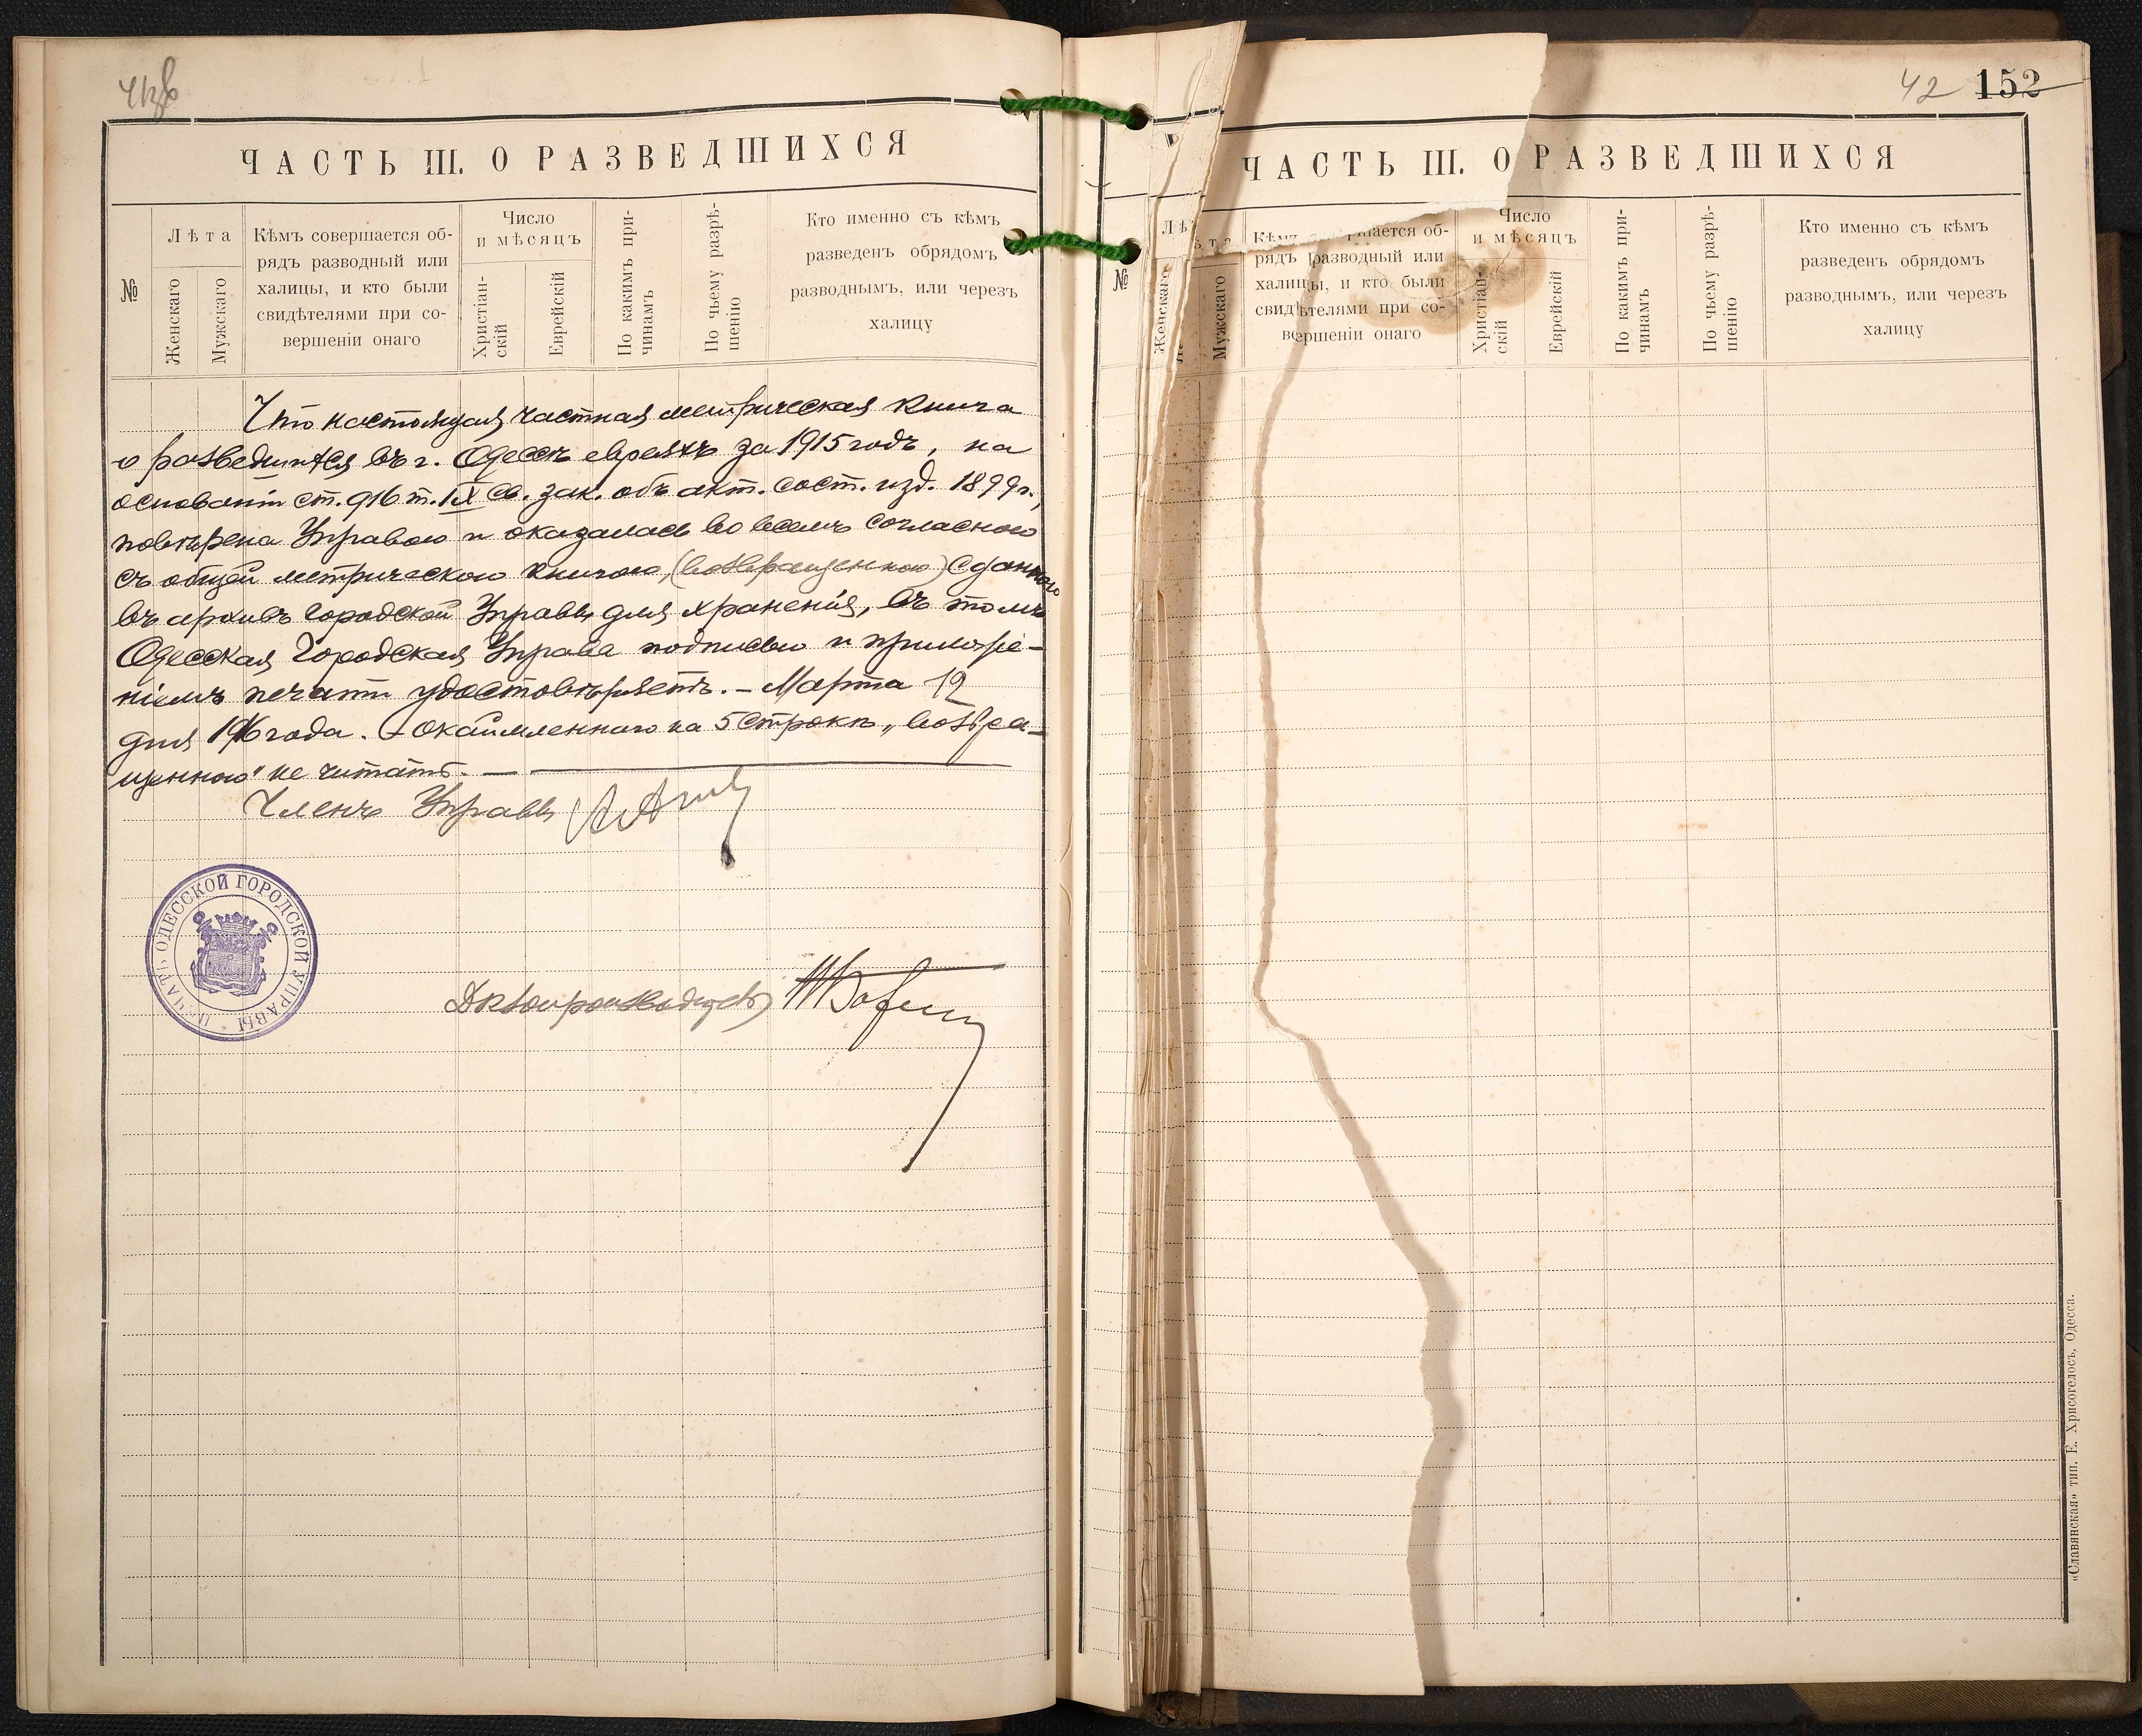 ЧАСТЬ III. О РАЗВЕДШИХСЯ
№
Лѣта
Женскаго
Мужскаго
Кѣмъ совершается об-
рядъ разводный или
халицы, и кто были
свидѣтелями при со-
вершеніи онаго
Число
и мѣсяцъ
Христіан-
скій
Еврейскій
По какимъ при-
чинамъ
По чьему разрѣ-
шенію
Кто именно съ кѣмъ
разведенъ обрядомъ
разводнымъ, или черезъ
халицу
Что настоящая частная метрическая книга
о разведшихся въ г. Одессѣ евреяхъ за 1915 годъ, на
основаніи ст. 916 т. IX св. зак. объ акт. сост. изд. 1899 г.,
повѣрена Управою и оказалась во всемъ согласною
съ общей метрическою книгою, (возвращенною) сданною
въ архивъ Городской Управы для храненія, въ томъ
Одесская Городская Управа подписью и приложе-
ніемъ печати удостовѣряетъ. – Марта 12
дня 1916 года. – Окаймленнаго на 5 строкѣ „возвра-
щенною" не читать. —
Членъ Управы
ПЕЧАТЬ ОДЕССКОЙ ГОРОДСКОЙ УПРАВЫ
Дѣлопроизводитель
42 152
ЧАСТЬ III. О РАЗВЕДШИХСЯ
№
Женскаго
Мужскаго
рядъ разводный или
халицы, и кто были
свидѣтелями при со-
вершеніи онаго
Число
и мѣсяцъ
Христіан-
скій
Еврейскій
По какимъ при-
чинамъ
По чьему разрѣ-
шенію
Кто именно съ кѣмъ
разведенъ обрядомъ
разводнымъ, или черезъ
халицу
«Славянская» тип. Е. Хрисогелосъ, Одесса.